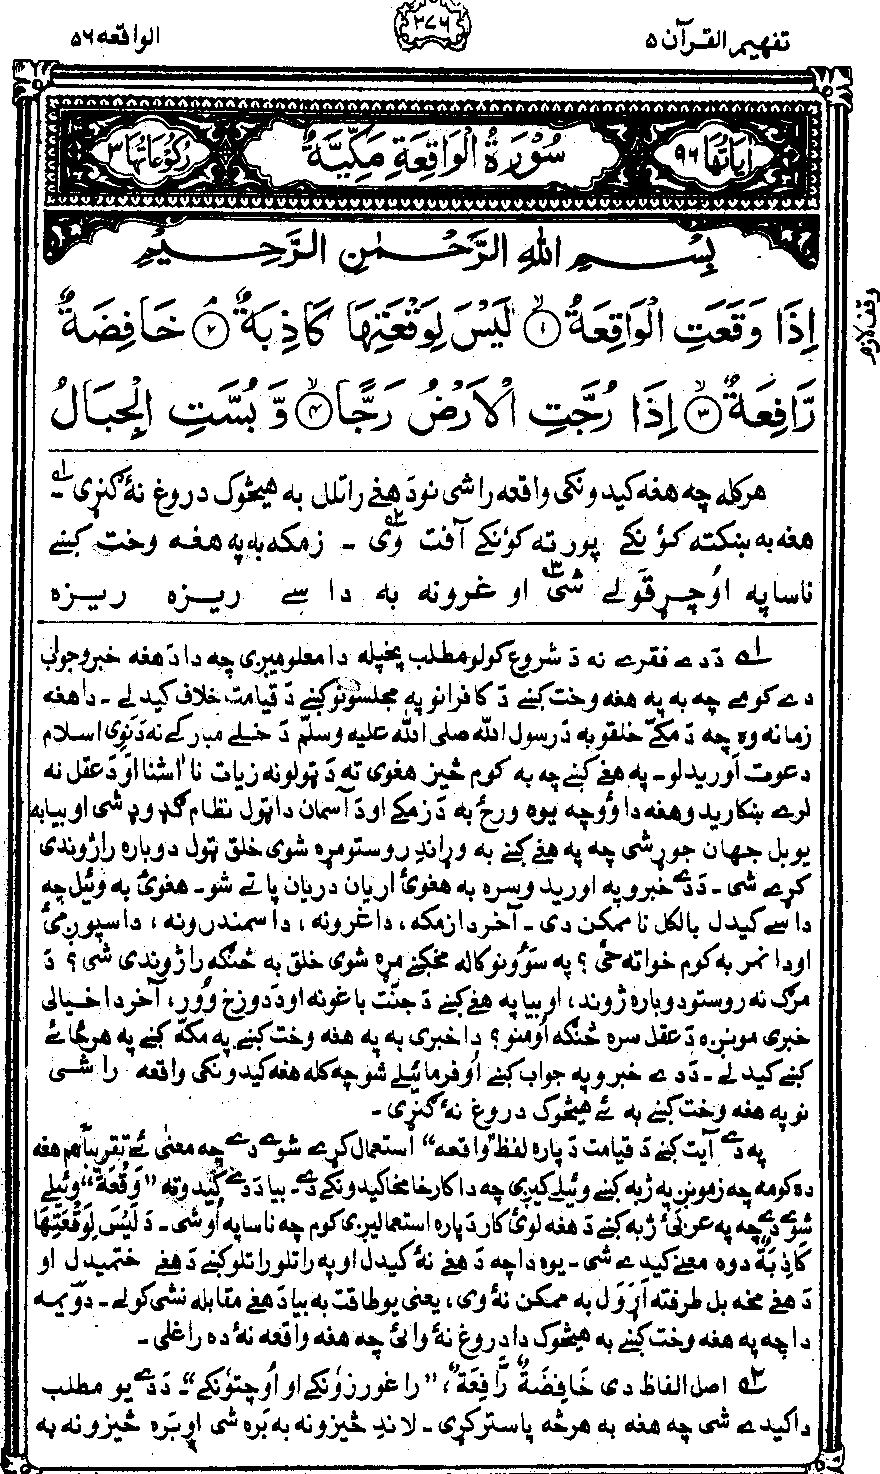 تفهیم القرآن ۵
۲۷۶
الواقعه ۵۶
اٰیَاتُهَا ۹۶
سُوْرَةُ الْوَاقِعَةِ مَكِّيَّةٌ
رُكُوْعَاتُهَا ۳
بِسْمِ اللهِ الرَّحْمٰنِ الرَّحِيْمِ
اِذَا وَقَعَتِ الْوَاقِعَةُ ۙ﴿۱﴾ لَيْسَ لِوَقْعَتِهَا كَاذِبَةٌ ۘ﴿۲﴾ خَافِضَةٌ
رَّافِعَةٌ ۙ﴿۳﴾ اِذَا رُجَّتِ الْاَرْضُ رَجًّا ۙ﴿۴﴾ وَّ بُسَّتِ الْجِبَالُ
وقف لازم
هرکله چه هغه کیدونکی واقعه راشی نو دَ هغے راتلل به هیڅوک دروغ نهٔ ګنړی ۱ـ
هغه به ښکته کوُنکے پورته کوُنکے آفت وی ۲ ـ زمکه به په هغه وخت کښے
ناساپه اوُچړقولے شی ۳ او غرونه به دا سے ریزه ریزه
۱ دَ دے فقرے نه دَ شروع کولو مطلب پخپله دا معلومیږی چه دا دَ هغه خبرو جواب
دے کومے چه به په هغه وخت کښے دَ کافرانو په مجلسونو کښے دَ قیامت خلاف کیدلے ـ دا هغه
زمانه وه چه دَ مکّے خلقو به دَ رسول الله صلی الله علیه وسلّم دَ خلے مبارکے نه دَ نوی اسلام
دعوت اوریدلو ـ په هغے کښے چه به کوم څیز هغوی ته دَ ټولو نه زیات نا اشنا او دَ عقل نه
لرے ښکاریدو هغه دا وو چه یوه ورځ به دَ زمکے او دَ آسمان دا ټول نظام ګډ وډ شی او بیا به
یو بل جهان جوړ شی چه په هغے کښے به وړاندِ روستو مړه شوی خلق ټول دوباره راژوندی
کړے شی ـ دَ دے خبرو په اوریدو سره به هغویٔ اریان دریان پاتے شو ـ هغویٔ به وئیل چه
دا سے کیدل بالکل نا ممکن دی ـ آخر دا زمکه، دا غرونه، دا سمندرونه، دا سپوږمیٔ
او دا نمر به کوم خوا ته ځی؟ په سوؤنو کاله مخکښے مړه شوی خلق به څنګه راژوندی شی؟ دَ
مرګ نه روستو دوباره ژوند، او بیا په هغے کښے دَ جنّت باغونه او دَ دوزخ وُور، آخر دا خیالی
خبری مونږه دَ عقل سره څنګه اومنو؟ دا خبری به په هغه وخت کښے په مکّه کښے په هر ځائے
کښے کیدلے ـ دَ دے خبرو په جواب کښے اوفرمائیلے شو چه کله هغه کیدونکی واقعه را شی
نو په هغه وخت کښے به ئے هیڅوک دروغ نهٔ ګنړی ـ
په دے آیت کښے دَ قیامت دَ پاره لفظ "واقعه" استعمال کړے شوے دے چه معنیٰ ئے تقریباً هم هغه
ده کومه چه زمونږ په ژبه کښے وئیلے کیږی چه دا کار خامخا کیدونکے دے ـ بیا دَ دے کیدو ته "وَقْعَةٌ" وئیلے
شوے دے چه په عربیٔ ژبه کښے دَ هغه لویٔ کار دَ پاره استعمالیږی کوم چه ناساپه اوُشی ـ دَ لَيْسَ لِوَقْعَتِهَا
كَاذِبَةٌ دوه معنے کیدے شی ـ یوه دا چه دَ هغے نهٔ کیدل او په راتلو راتلو کښے دَ هغے ختمیدل او
دَ هغے مخه بل طرفته اَړول به ممکن نهٔ وی، یعنی یو طاقت به بیا دَ هغے مقابله نشی کولے ـ دوّیمه
دا چه په هغه وخت کښے به هیڅوک دا دروغ نهٔ وائی چه هغه واقعه نهٔ ده راغلی ـ
۲ اصل الفاظ دی خَافِضَةٌ رَّافِعَةٌ، "را غورزونکے او اوُچتوُنکے" ـ دَ دے یو مطلب
دا کیدے شی چه هغه به هر څه پاسترکړی ـ لاندِ څیزونه به بَره شی او بَره څیزونه به